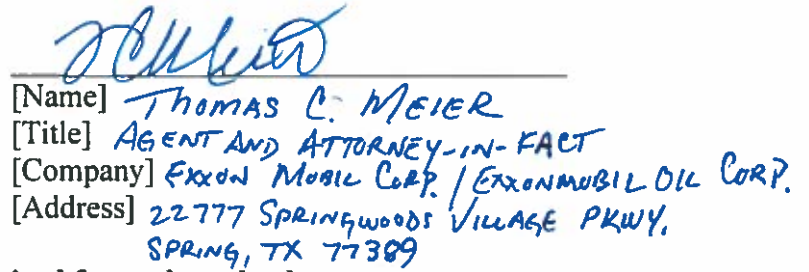 [Name] THOMAS C. MEIER
[Title] AGENT AND ATTORNEY-IN-FACT
[Company] EXXON MOBIL CORP. / EXXONMOBIL OIL CORP.
[Address] 22777 SPRINGWOODS VILLAGE PKWY.
SPRING, TX 77389